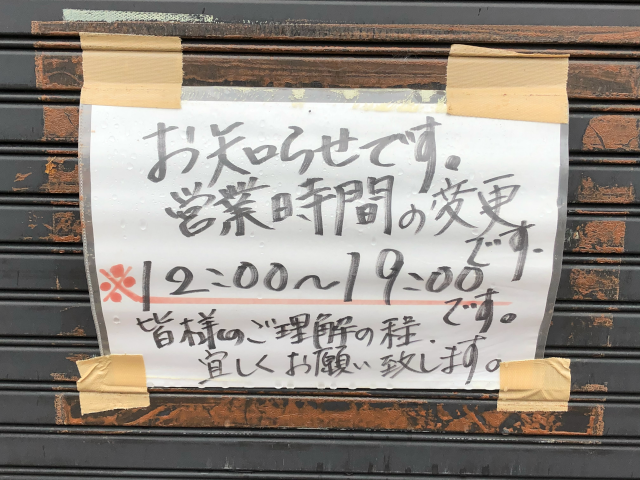 お知らせです。
営業時間の変更
です.
※12:00〜19:00
です。
皆様のご理解の程.
宜しくお願い致します。